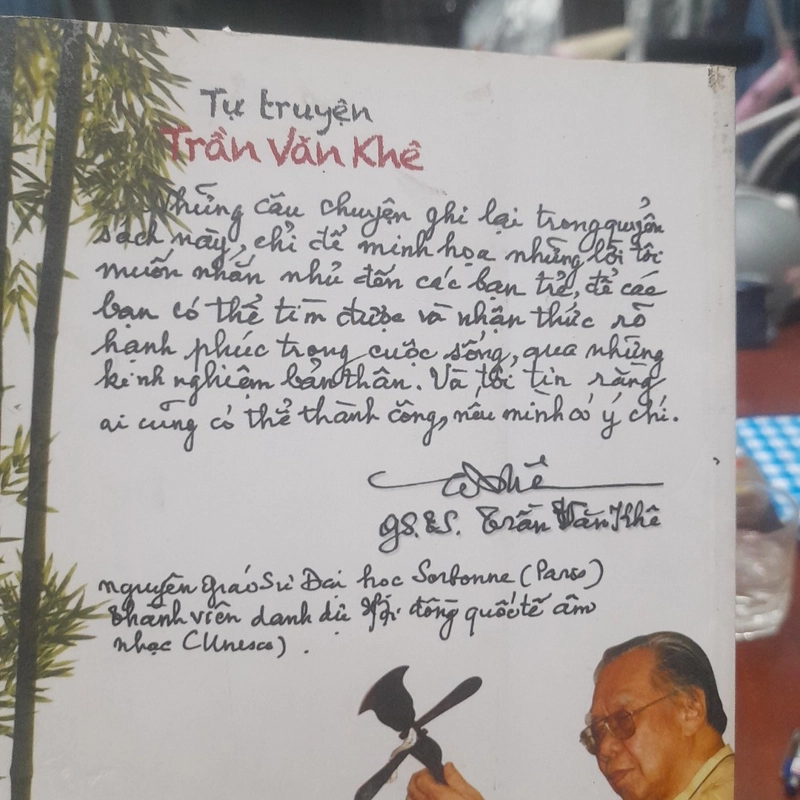 Tự truyện
Trần Văn Khê
Những câu chuyện ghi lại trong quyển
sách này, chỉ để minh họa những lời tôi
muốn nhắn nhủ đến các bạn trẻ, để các
bạn có thể tìm được và nhận thức rõ
hạnh phúc trong cuộc sống, qua những
kinh nghiệm bản thân. Và tôi tin rằng
ai cũng có thể thành công, nếu mình có ý chí.
Khê
GS.TS. Trần Văn Khê
nguyên giáo sư Đại học Sorbonne (Paris)
Thành viên danh dự Hội đồng quốc tế âm
nhạc (Unesco).